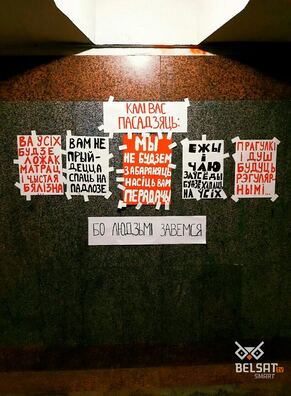 КАЛІ ВАС
ПАСАДЗЯЦЬ:
ВА ЎСІХ
БУДЗЕ
ЛОЖАК
МАТРАЦ
І ЧЫСТАЯ
БЯЛІЗНА
ВАМ НЕ
ПРЫЙ-
ДЕЦЦА
СПАЦЬ НА
ПАДЛОЗЕ
МЫ
НЕ БУДЗЕМ
ЗАБАРАНЯЦЬ
НАСІЦЬ ВАМ
ПЕРАДАЧЫ
ЕЖЫ
І
ЧАЮ
ЗАЎСЁДЫ
БУДЗЕ ХАПАЦЬ
НА ЎСІХ
ПРАГУЛКІ
І ДУШ
БУДУЦЬ
РЭГУЛЯР-
НЫМІ...
БО ЛЮДЗЬМІ ЗАВЕМСЯ
BELSAT TV
SMART